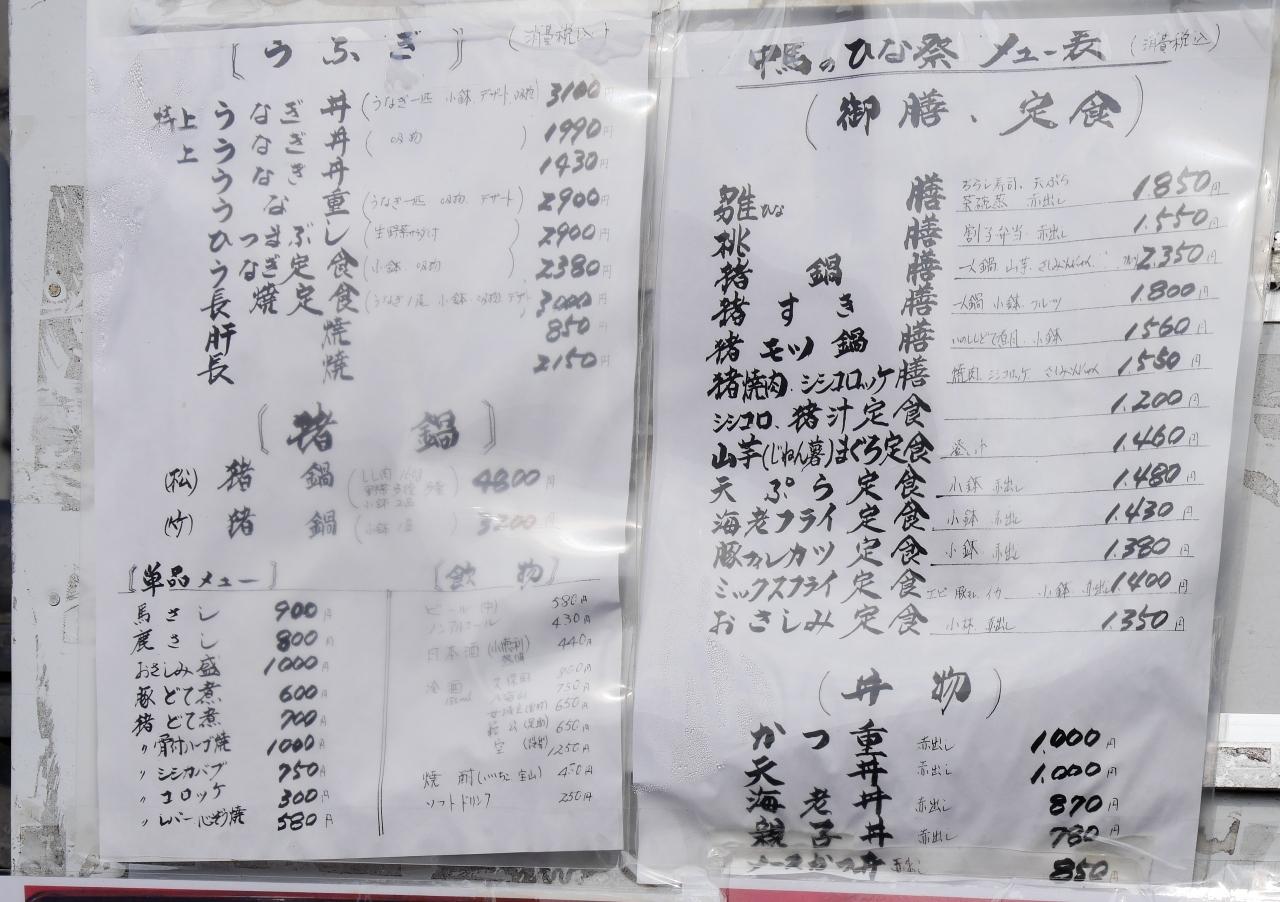 〘うなぎ〙 (消費税込)
特上うなぎ丼 (うなぎ一匹 小鉢 デザート 吸物) 3100円
上うなぎ丼 (吸物) 1990円
うなぎ丼 1430円
うな重 (うなぎ一匹 吸物 デザート) 2900円
ひつまぶし 2900円
うなぎ定食 (小鉢 吸物) 2380円
長焼定食 3000円
肝焼 850円
長焼 2150円
〘猪鍋〙
(松) 猪鍋 4800円
(竹) 猪鍋 3200円
〔単品メニュー〕
馬さし 900円
鹿さし 800円
おさしみ盛 1000円
豚どて煮 600円
猪どて煮 700円
〃骨付ハーブ焼 1000円
〃シシカバブ 750円
〃コロッケ 300円
〃レバー心が焼 580円
〔飲物〕
ビール(中) 580円
ノンアルコール 430円
日本酒 440円
冷酒 久保田
750円
650円
650円
空 1250円
焼酎(いいちこ 宝山) 450円
ソフトドリンク 250円
中馬のひな祭 メニュー表 (消費税込)
(御膳、定食)
雛ひな膳 ちらし寿司、天ぷら 茶碗蒸 赤出し 1850円
桃膳 割子弁当 赤出し 1.550円
猪鍋膳 一人鍋 山芋 さしみこんにゃく 2350円
猪すき膳 一人鍋 小鉢 フルーツ 1.800円
猪モツ鍋膳 いのししどて煮 小鉢 1560円
猪焼肉、シシコロッケ膳 焼肉 シシコロッケ さしみこんにゃく 1.550円
シシコロ、猪汁定食 1.200円
山芋(じねん薯)まぐろ定食 1.460円
天ぷら定食 小鉢 赤出し 1.480円
海老フライ定食 小鉢 赤出 1.430円
豚ヒレカツ定食 小鉢 赤出 1.380円
ミックスフライ定食 エビ 豚ヒレ イカ 小鉢 赤出し 1400円
おさしみ定食 小鉢 赤出し 1.350円
(丼物)
かつ重 赤出し 1.000円
天丼 赤出し 1.000円
海老丼 赤出し 870円
親子丼 赤出し 780円
ソースかつ丼 赤出し 850円